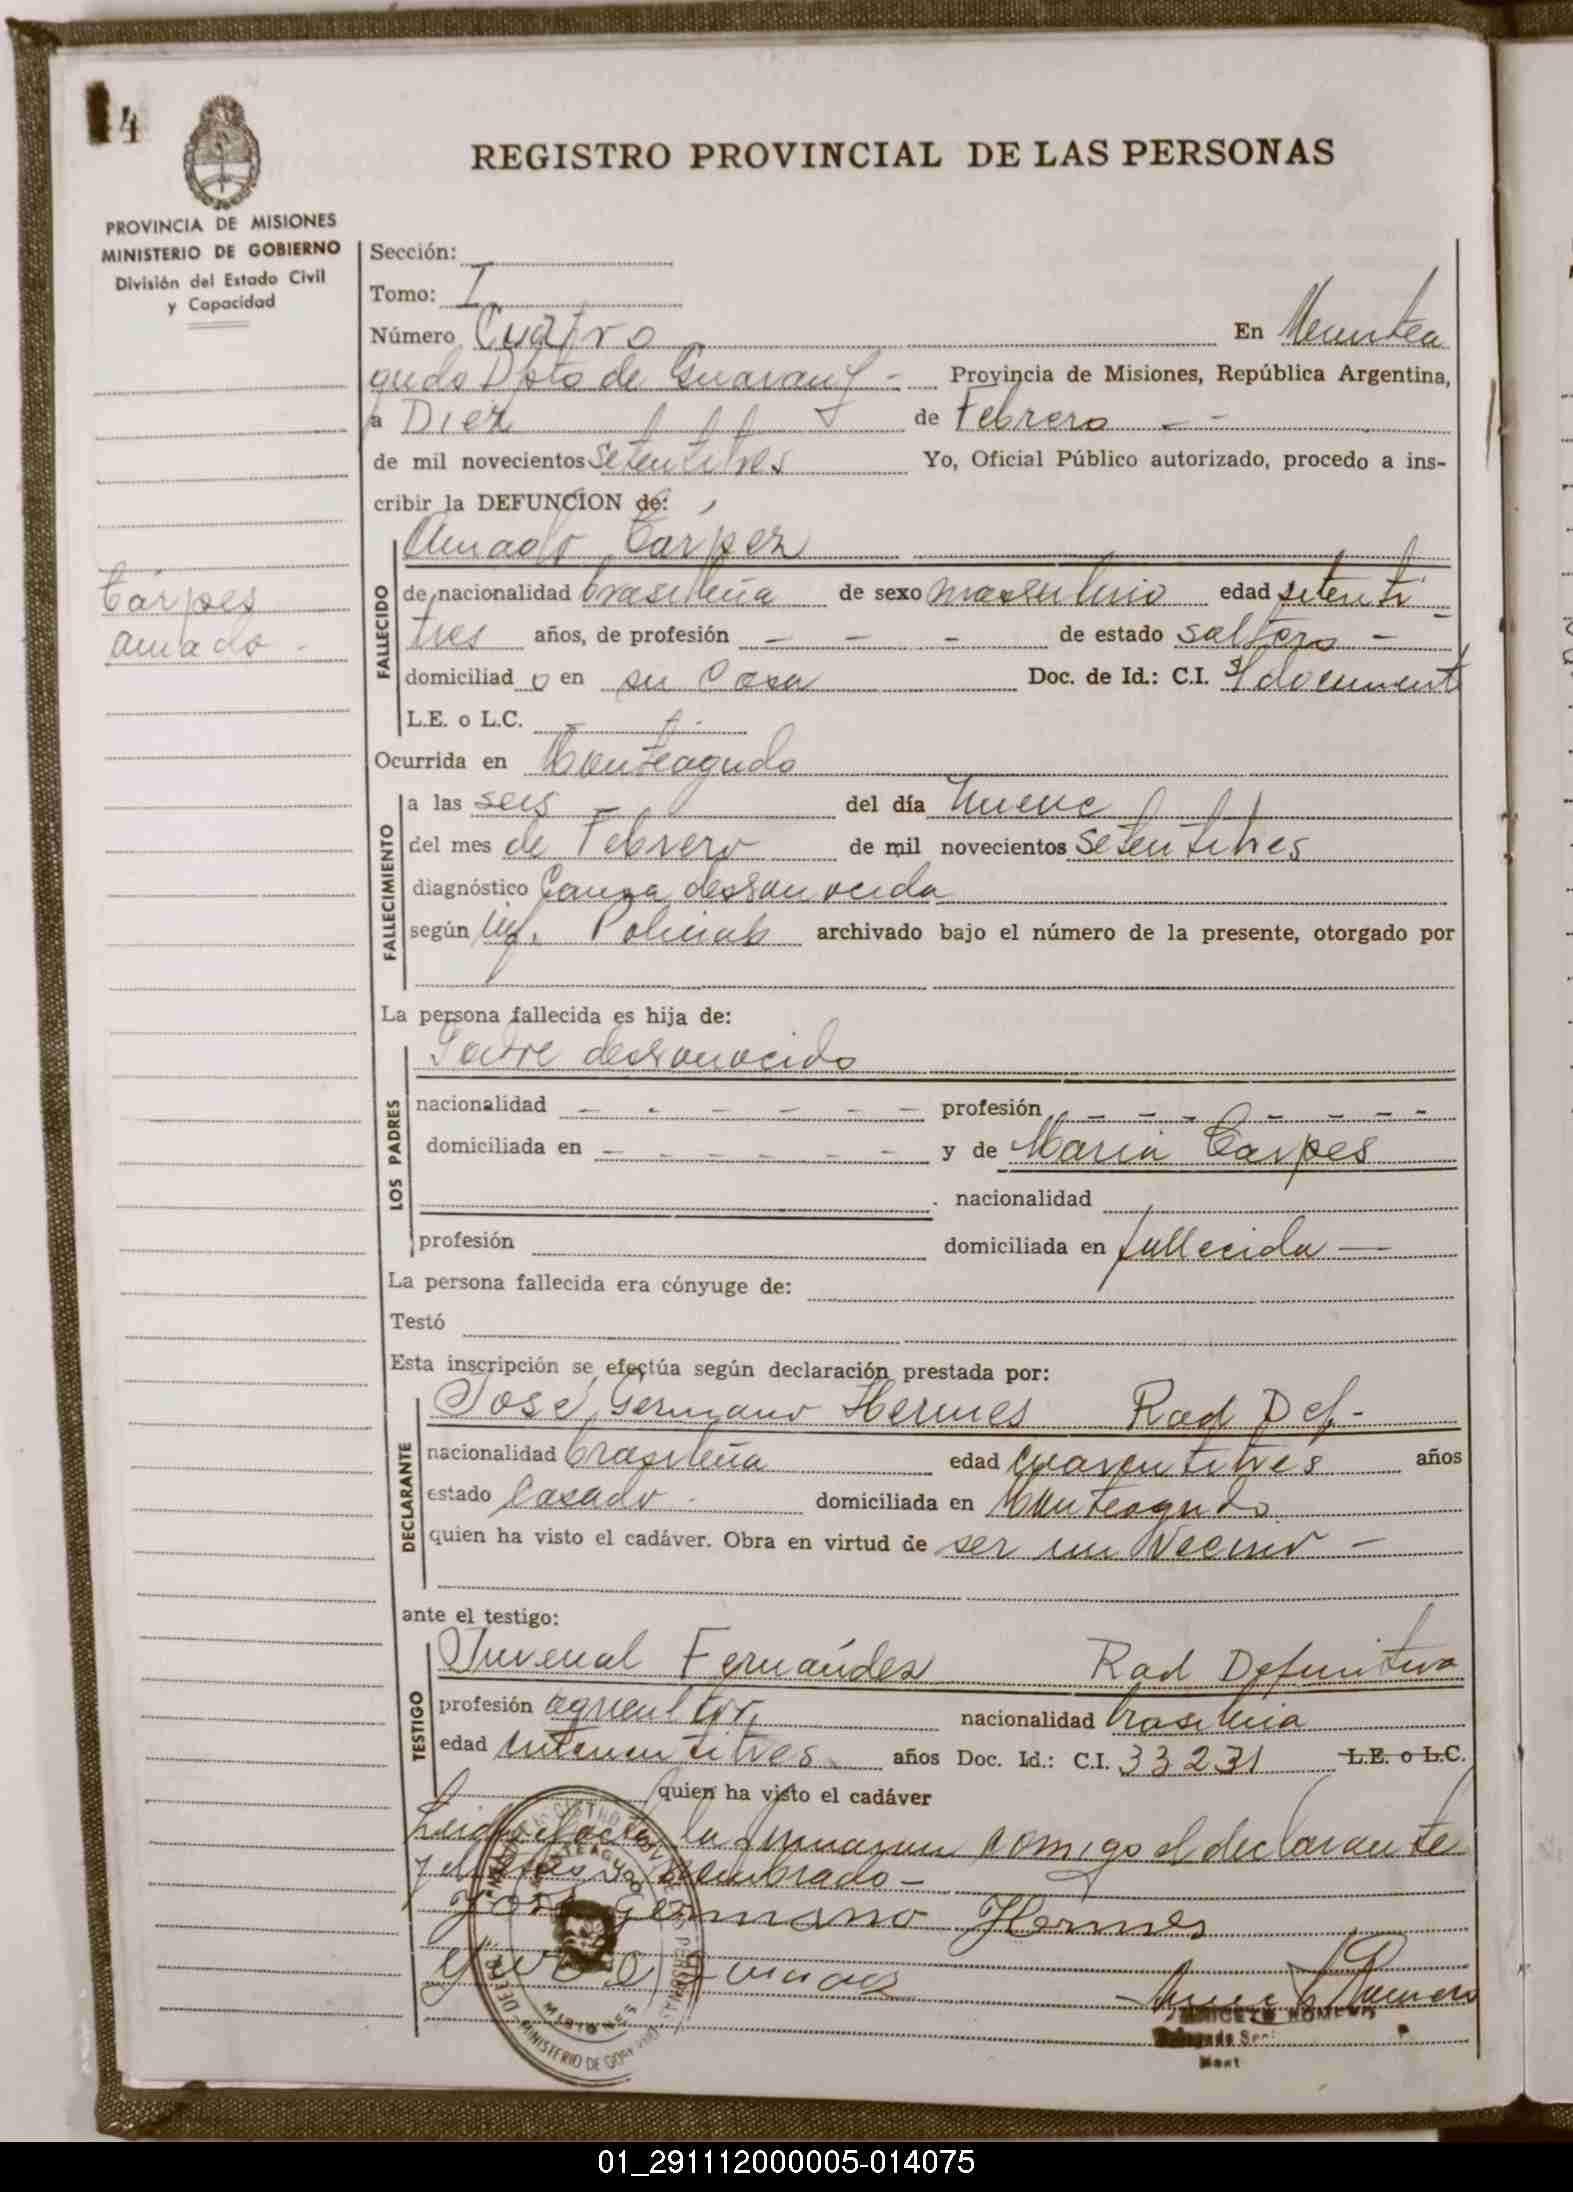 4
REGISTRO PROVINCIAL DE LAS PERSONAS
PROVINCIA DE MISIONES
MINISTERIO DE GOBIERNO
División del Estado Civil
y Capacidad
Sección:
Tomo: I
Número Cuatro En Monteagudo
Dpto de Guaraní - Provincia de Misiones, República Argentina,
a Diez de Febrero - -
de mil novecientos setentitres Yo, Oficial Público autorizado, procedo a ins-
cribir la DEFUNCION de:
Amado Cárpez
Cárpes
amado -
FALLECIDO
de nacionalidad brasileña de sexo masculino edad setenti
tres años, de profesión - - - de estado soltero -
domiciliad o en su Casa Doc. de Id.: C.I. S/documento
L.E. o L.C.
Ocurrida en Monteagudo
FALLECIMIENTO
a las seis del día nueve
del mes de Febrero de mil novecientos setentitres
diagnóstico Causa desconocida
según inf. Policial archivado bajo el número de la presente, otorgado por
La persona fallecida es hija de:
LOS PADRES
Padre desconocido
nacionalidad - - - - - - profesión - - - - - - -
domiciliada en - - - - - - y de Maria Carpes
nacionalidad
profesión domiciliada en fallecida —
La persona fallecida era cónyuge de:
Testó
Esta inscripción se efectúa según declaración prestada por:
DECLARANTE
José Germano Hermes Rad Def. -
nacionalidad brasileña edad cuarentitres años
estado Casado - domiciliada en Monteagudo
quien ha visto el cadáver. Obra en virtud de ser un Vecino -
ante el testigo:
TESTIGO
Juvenal Fernández Rad Definitiva
profesión agricultor, nacionalidad brasileña
edad años Doc. Id.: C.I. 33231 L.E. o L.C.
quien ha visto el cadáver
Leida el acta la firman comigo el declarante
y el testigo nombrado -
José Germano Hermes
ANICETO ROMERO
MONTEAGUDO
MISIONES
MINISTERIO DE GOBIERNO
01_291112000005-014075